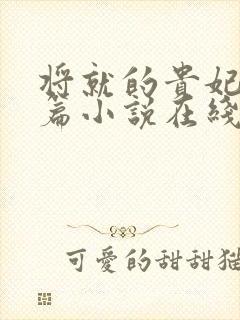 将就的貴妃
篇小説在綫
可愛的甜甜猫